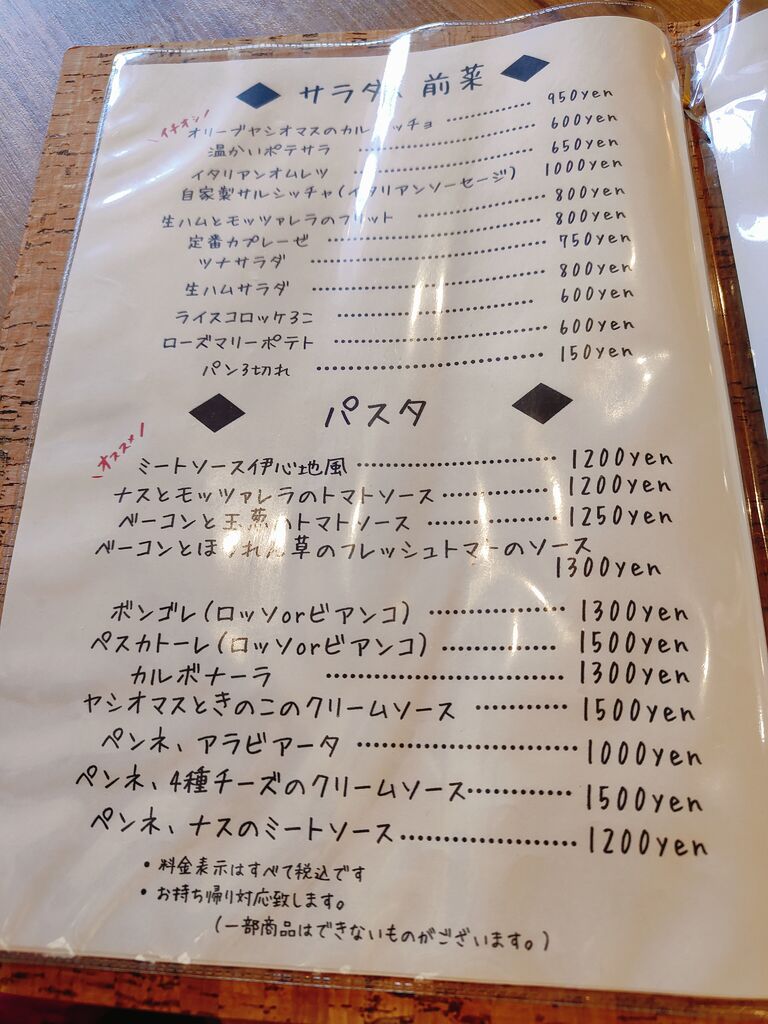 サラダ、前菜
イチオシ!
オリーブヤシオマスのカルパッチョ ………… 950yen
温かいポテサラ ………… 600yen
イタリアンオムレツ ………… 650yen
自家製サルシッチャ(イタリアンソーセージ) 1000yen
生ハムとモッツァレラのフリット ………… 800yen
定番カプレーゼ ………… 800yen
ツナサラダ ………… 750yen
生ハムサラダ ………… 800yen
ライスコロッケ3コ ………… 600yen
ローズマリーポテト ………… 600yen
パン3切れ ………… 150yen
パスタ
オススメ!
ミートソース伊心地風 ………… 1200yen
ナスとモッツァレラのトマトソース ………… 1200yen
ベーコンと玉葱のトマトソース ………… 1250yen
ベーコンとほうれん草のフレッシュトマトのソース
1300yen
ボンゴレ(ロッソorビアンコ) ………… 1300yen
ペスカトーレ(ロッソorビアンコ) ………… 1500yen
カルボナーラ ………… 1300yen
ヤシオマスときのこのクリームソース ………… 1500yen
ペンネ、アラビアータ ………… 1000yen
ペンネ、4種チーズのクリームソース ………… 1500yen
ペンネ、ナスのミートソース ………… 1200yen
・料金表示はすべて税込です
・お持ち帰り対応致します。
(一部商品はできないものがございます。)